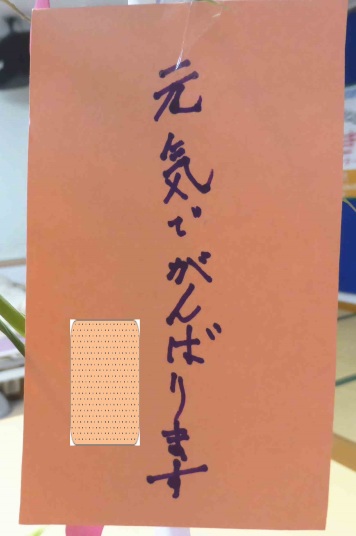 元気でがんばります